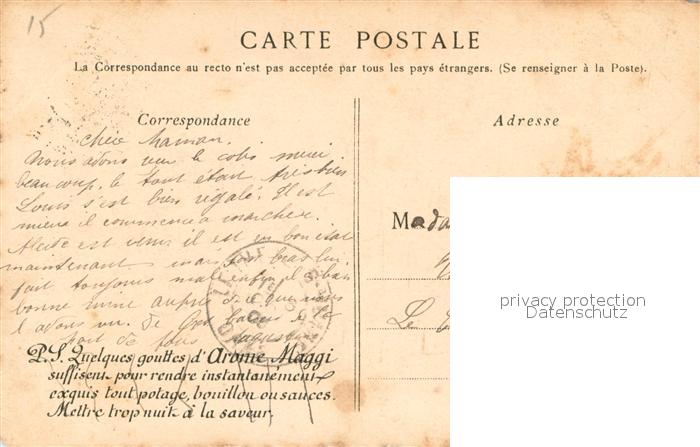 15
CARTE POSTALE
La Correspondance au recto n'est pas acceptée par tous les pays étrangers. (Se renseigner à la Poste).
Correspondance
Adresse
Chère Maman,
Nous avons reçu le colis merci
beaucoup, le tout était très bien
Louis s'est bien régalé. Il est
mieux il commence à marcher.
est venu il est en bon état
maintenant mais
fait toujours mal enfin il a ban
bonne mine auprès de ce que nous
l'avons vu. de Gros baisers de la
part de tous
Mada
Le
P.S. Quelques gouttes d'Arome Maggi
suffisent pour rendre instantanément
exquis tout potage, bouillon ou sauces.
Mettre trop nuit à la saveur.
privacy protection
Datenschutz